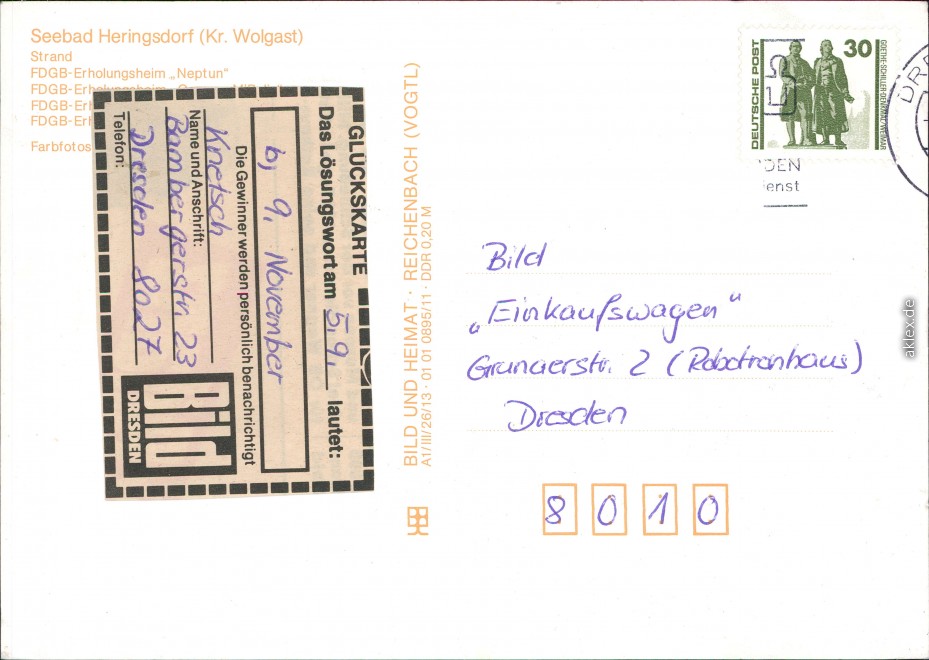 Seebad Heringsdorf (Kr. Wolgast)
Strand
FDGB-Erholungsheim „Neptun"
FDGB-Erholungsheim
FDGB-Erh
FDGB-Erh
Farbfotos
GLÜCKSKARTE
Das Lösungswort am 5.9. lautet:
b) 9. November
Die Gewinner werden persönlich benachrichtigt
Kretsch
Name und Anschrift:
Bambergerstr. 23
Dresden 8027
Telefon:
Bild
DRESDEN
BILD UND HEIMAT · REICHENBACH (VOGTL)
A1/III/26/13 · 01 01 0895/11 · DDR 0,20 M
DEUTSCHE POST
30
GOETHE-SCHILLER-DENKMAL WEIMAR
DRE
DEN
ienst
Bild
„Einkaufswagen"
Grunaerstr. 2 (Robotronhaus)
Dresden
8 0 1 0
aklex.de